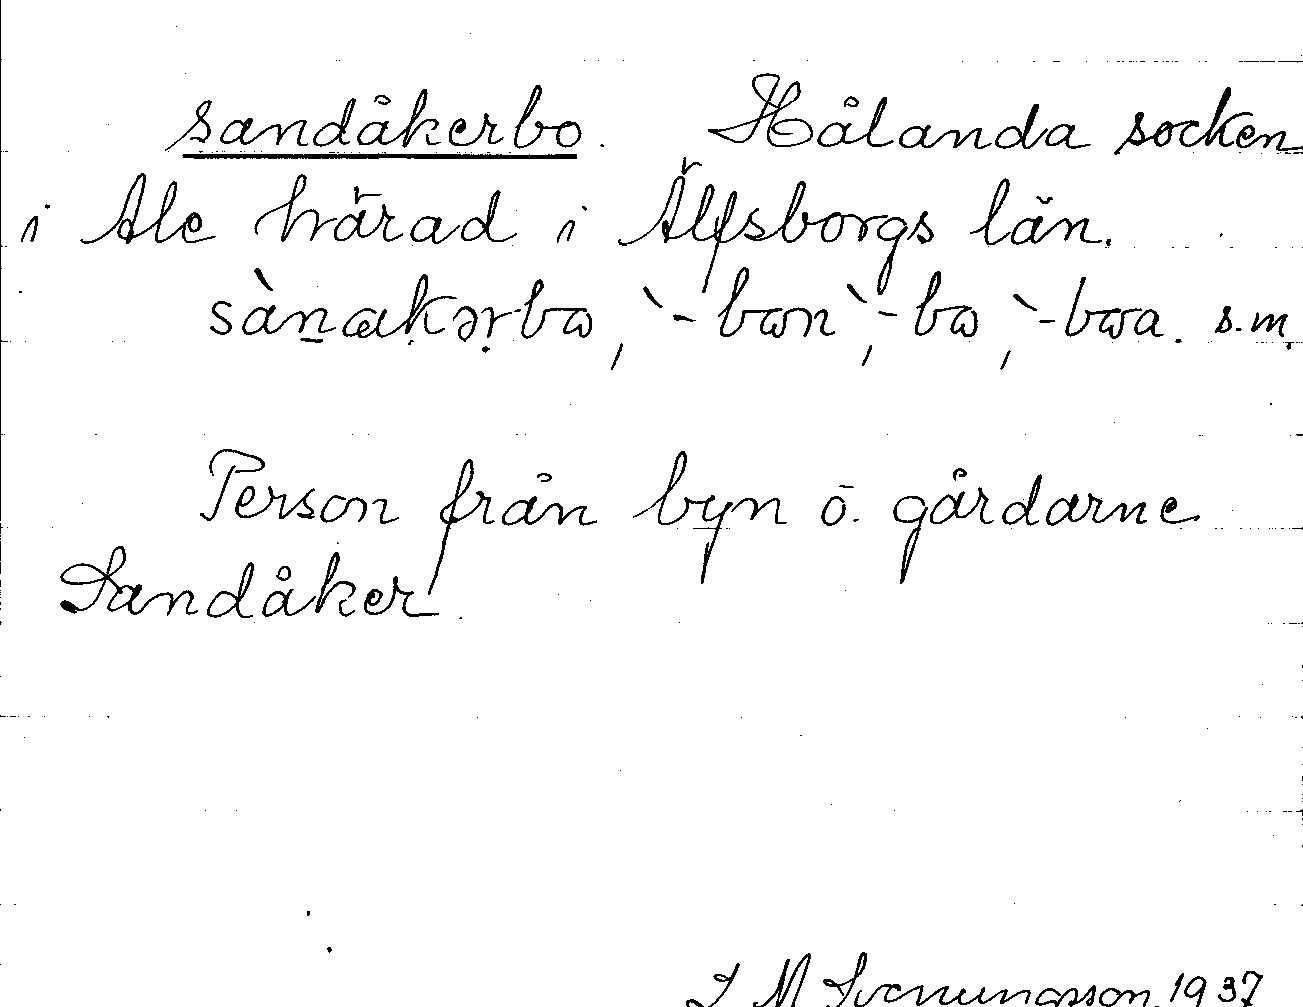 sandåkerbo. Hålanda socken
i Ale härad i Älfsborgs län.
sànakərbω, `-bωn, `-bω, `-bωa. s.m.
Person från byn o. gårdarne
Sandåker.
1937